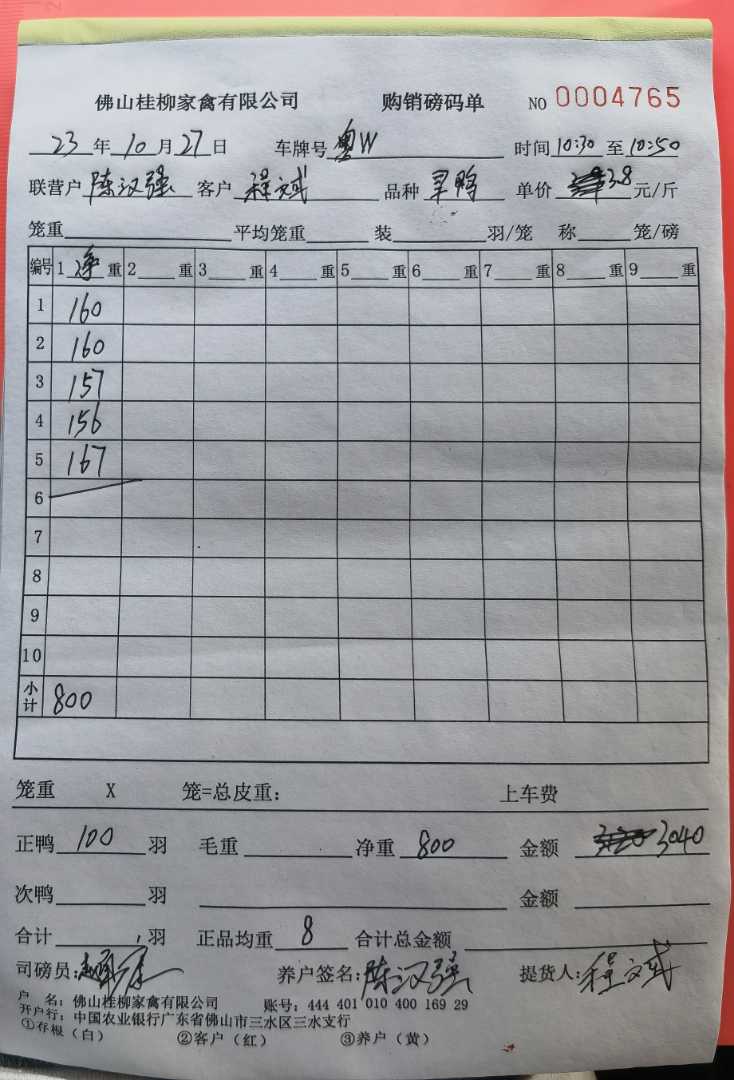 佛山桂柳家禽有限公司 购销磅码单 NO 0004765
23年10月27日 车牌号粤W 时间10:30至10:50
联营户陈汉强 客户程文斌 品种旱鸭 单价3.8元/斤
笼重 平均笼重 装 羽/笼 称 笼/磅
编号 1净重 2 重 3 重 4 重 5 重 6 重 7 重 8 重 9 重
1 160
2 160
3 157
4 156
5 167
6
7
8
9
10
小计 800
笼重 X 笼=总皮重: 上车费
正鸭100羽 毛重 净重800 金额 3040
次鸭 羽 金额
合计 羽 正品均重8 合计总金额
司磅员: 养户签名:陈汉强 提货人:程文斌
户 名: 佛山桂柳家禽有限公司 账号: 444 401 010 400 169 29
开户行: 中国农业银行广东省佛山市三水区三水支行
①存根(白) ②客户(红) ③养户(黄)